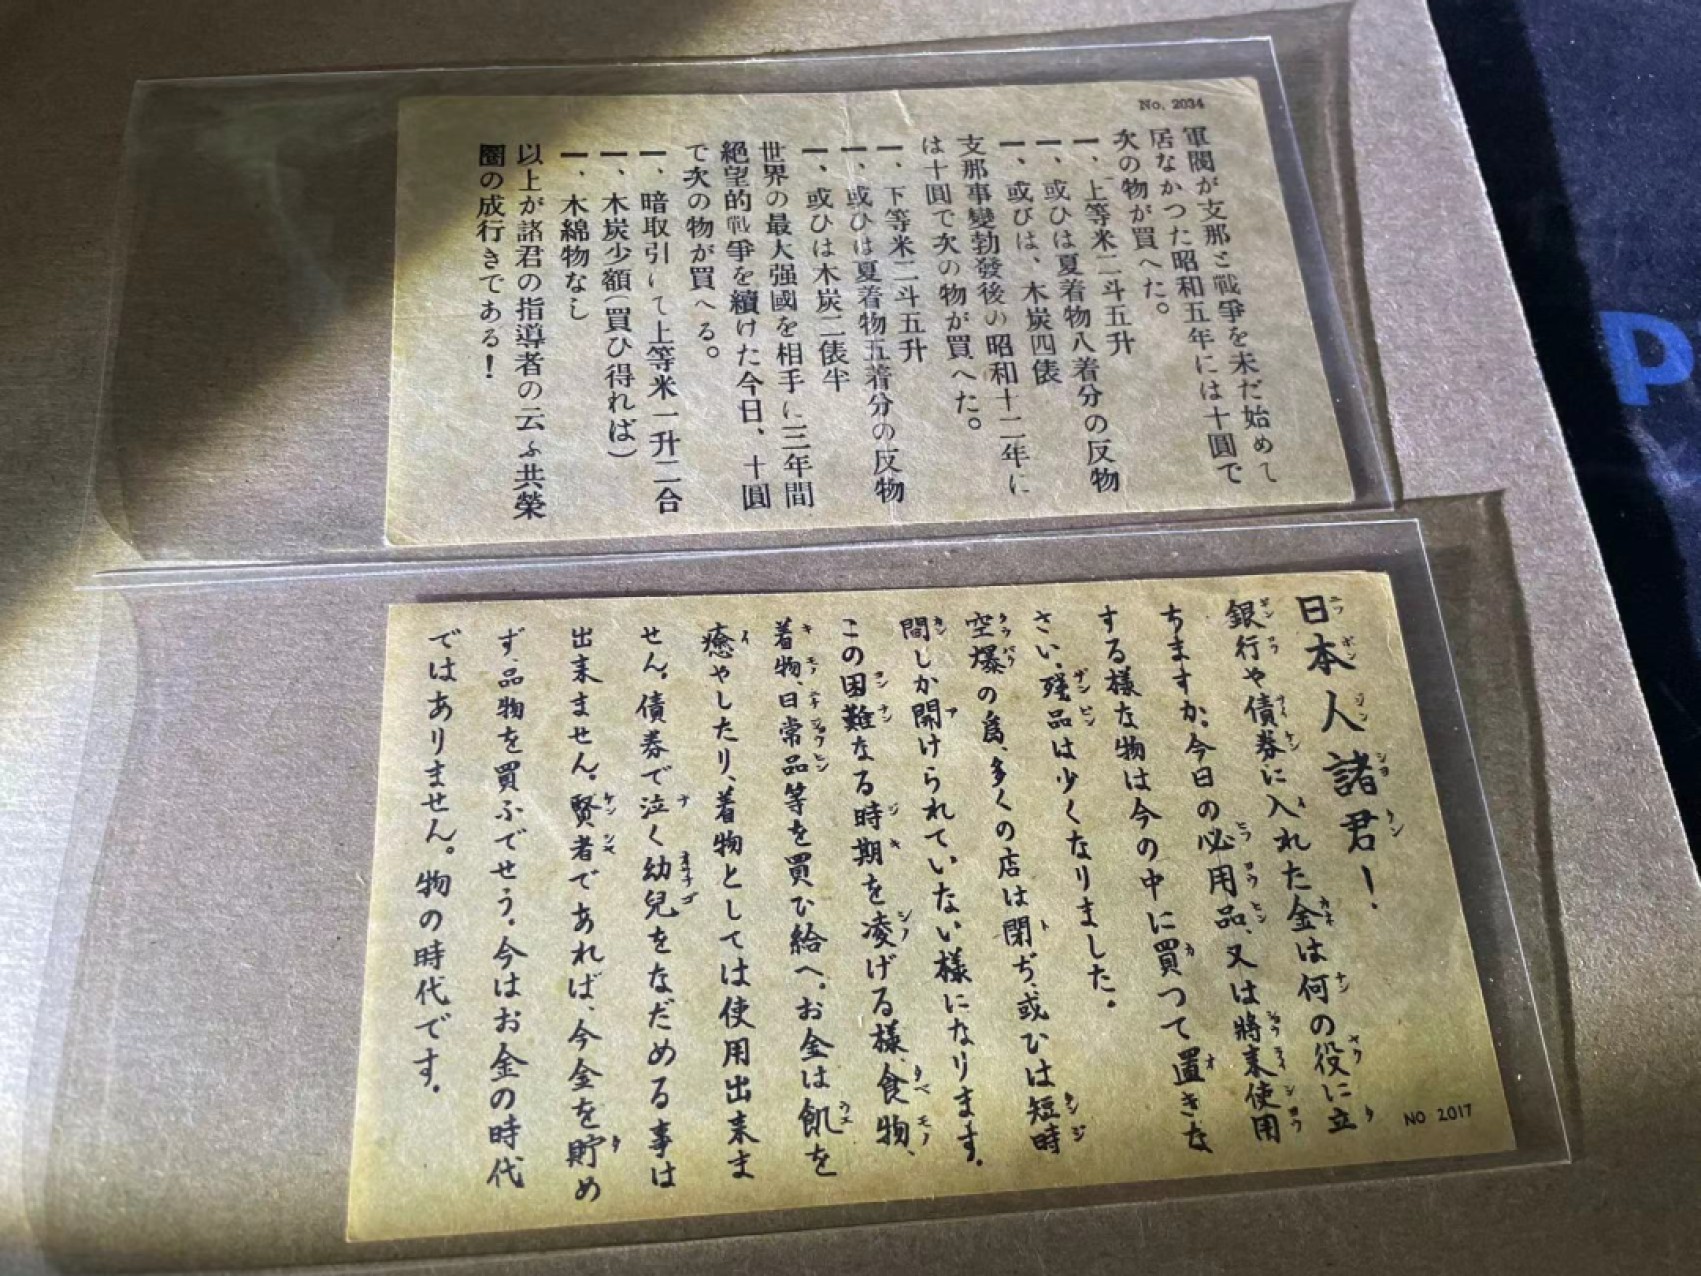 No. 2034
軍閥が支那と戰爭を未だ始めて
居なかつた昭和五年には十圓で
次の物が買へた。
一、上等米二斗五升
一、或ひは夏着物八着分の反物
一、或びは、木炭四俵
支那事變勃發後の昭和十二年に
は十圓で次の物が買へた。
一、下等米二斗五升
一、或ひは夏着物五着分の反物
一、或ひは木炭二俵半
世界の最大强國を相手に三年間
絕望的戰爭を續けた今日、十圓
で次の物が買へる。
一、暗取引にて上等米一升二合
一、木炭少額(買ひ得れば)
一、木綿物なし
以上が諸君の指導者の云ふ共榮
圈の成行きである!
日本人諸君!
銀行や債券に入れた金は何の役に立
ちますか。今日の必用品、又は將來使用
する樣な物は今の中に買つて置きな
さい。殘品は少くなりました。
空爆の爲、多くの店は閉ぢ、或ひは短時
間しか開けられていない樣になります。
この困難なる時期を凌げる樣、食物、
着物、日常品等を買ひ給へ。お金は飢を
癒やしたり、着物としては使用出来ま
せん。債券で泣く幼兒をなだめる事は
出来ません。賢者であれば、今金を貯め
ず、品物を買ふでせう。今はお金の時代
ではありません。物の時代です。
NO 2017
P